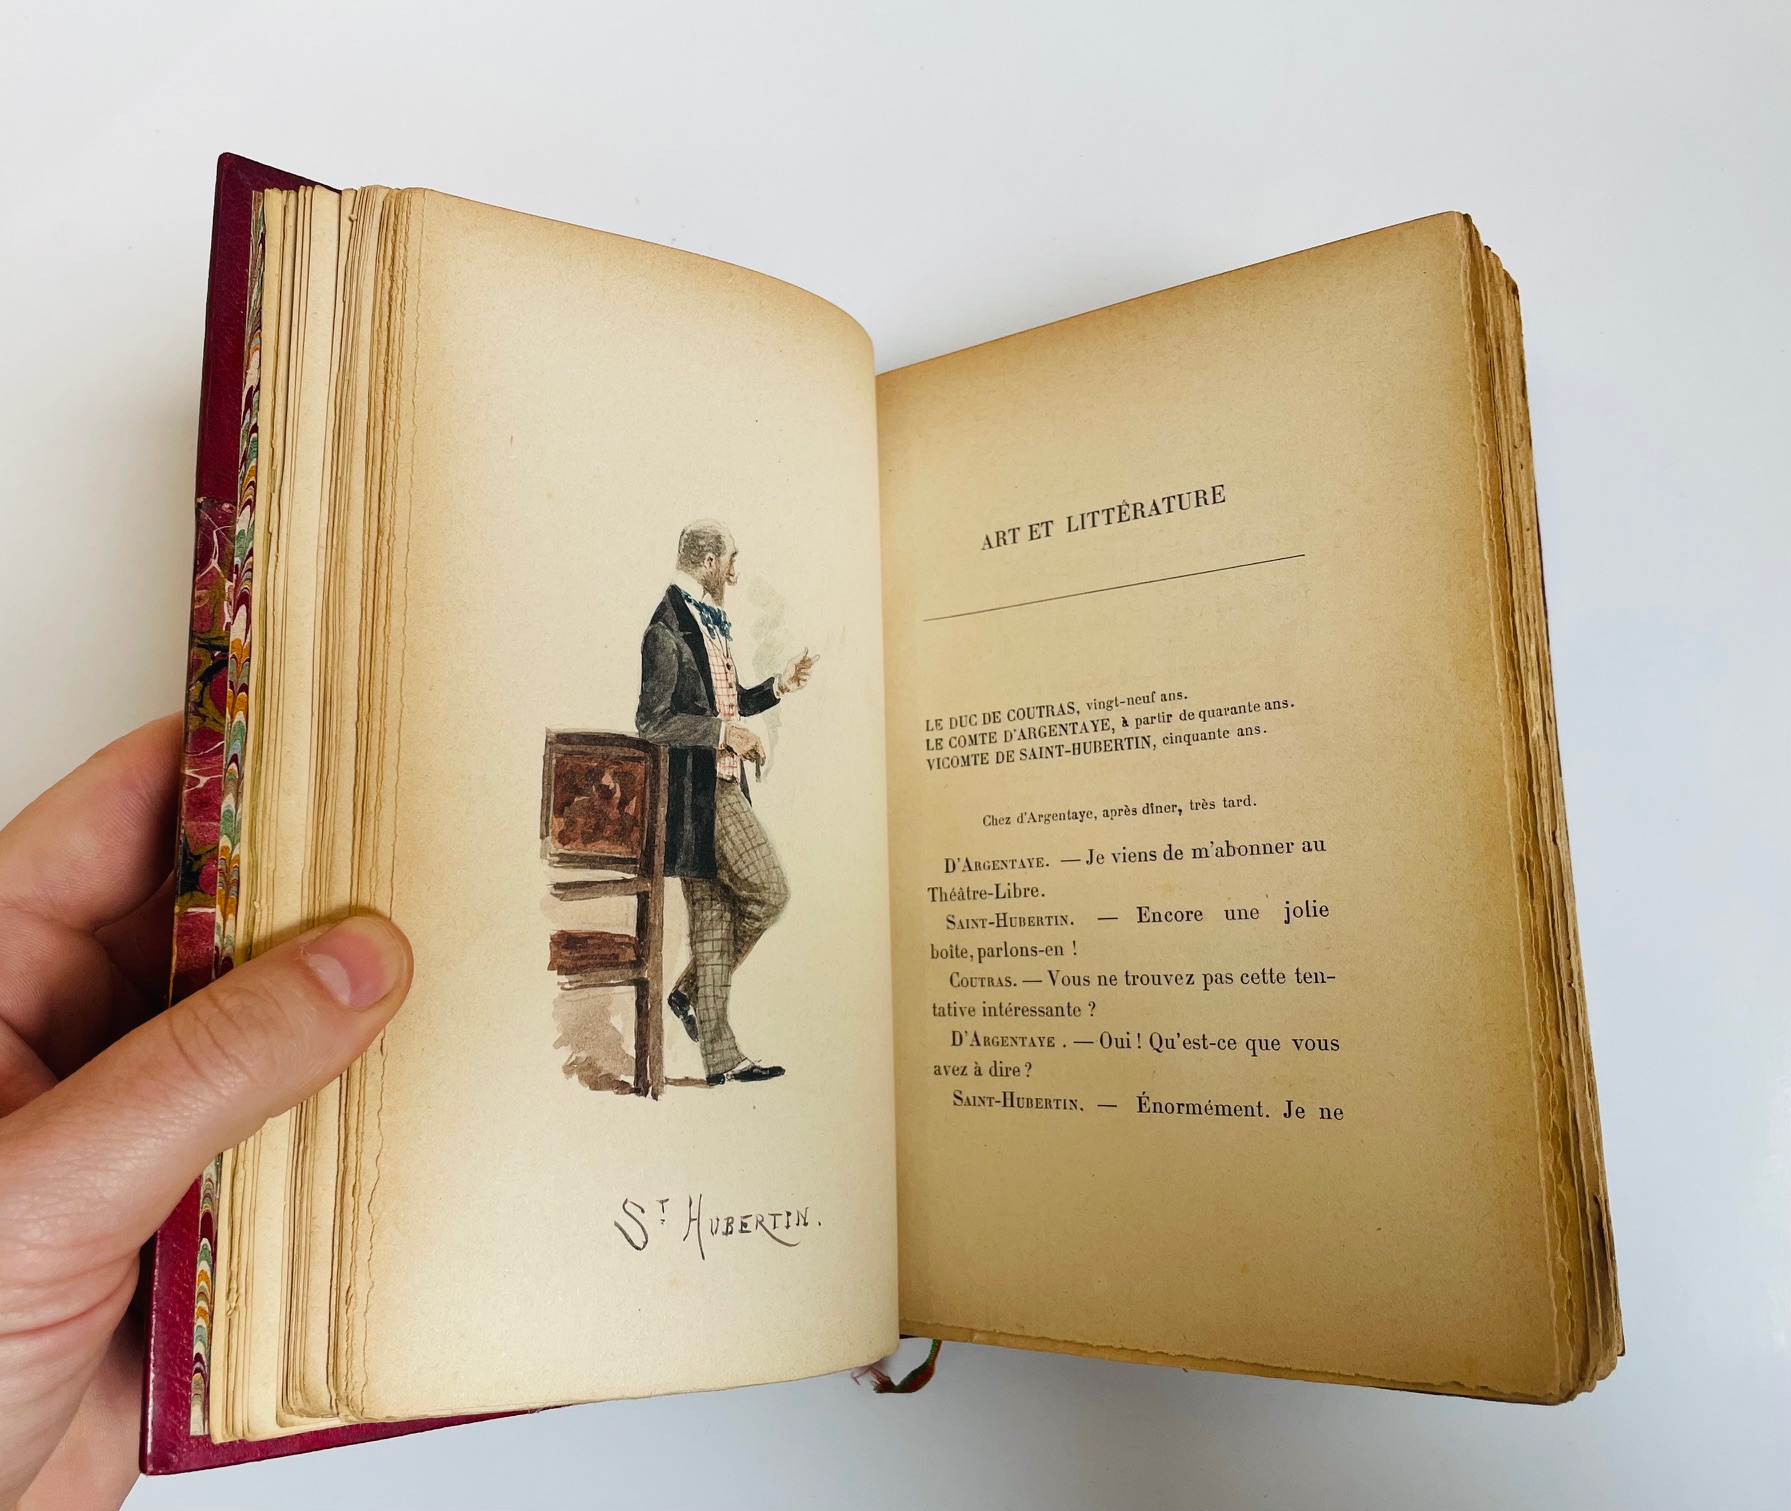 ST HUBERTIN.
ART ET LITTÉRATURE
LE DUC DE COUTRAS, vingt-neuf ans.
LE COMTE D'ARGENTAYE, à partir de quarante ans.
VICOMTE DE SAINT-HUBERTIN, cinquante ans.
Chez d'Argentaye, après dîner, très tard.
D'ARGENTAYE. — Je viens de m'abonner au
Théâtre-Libre.
SAINT-HUBERTIN. — Encore une jolie
boîte, parlons-en !
COUTRAS. — Vous ne trouvez pas cette ten-
tative intéressante ?
D'ARGENTAYE . — Oui ! Qu'est-ce que vous
avez à dire ?
SAINT-HUBERTIN. — Énormément. Je ne